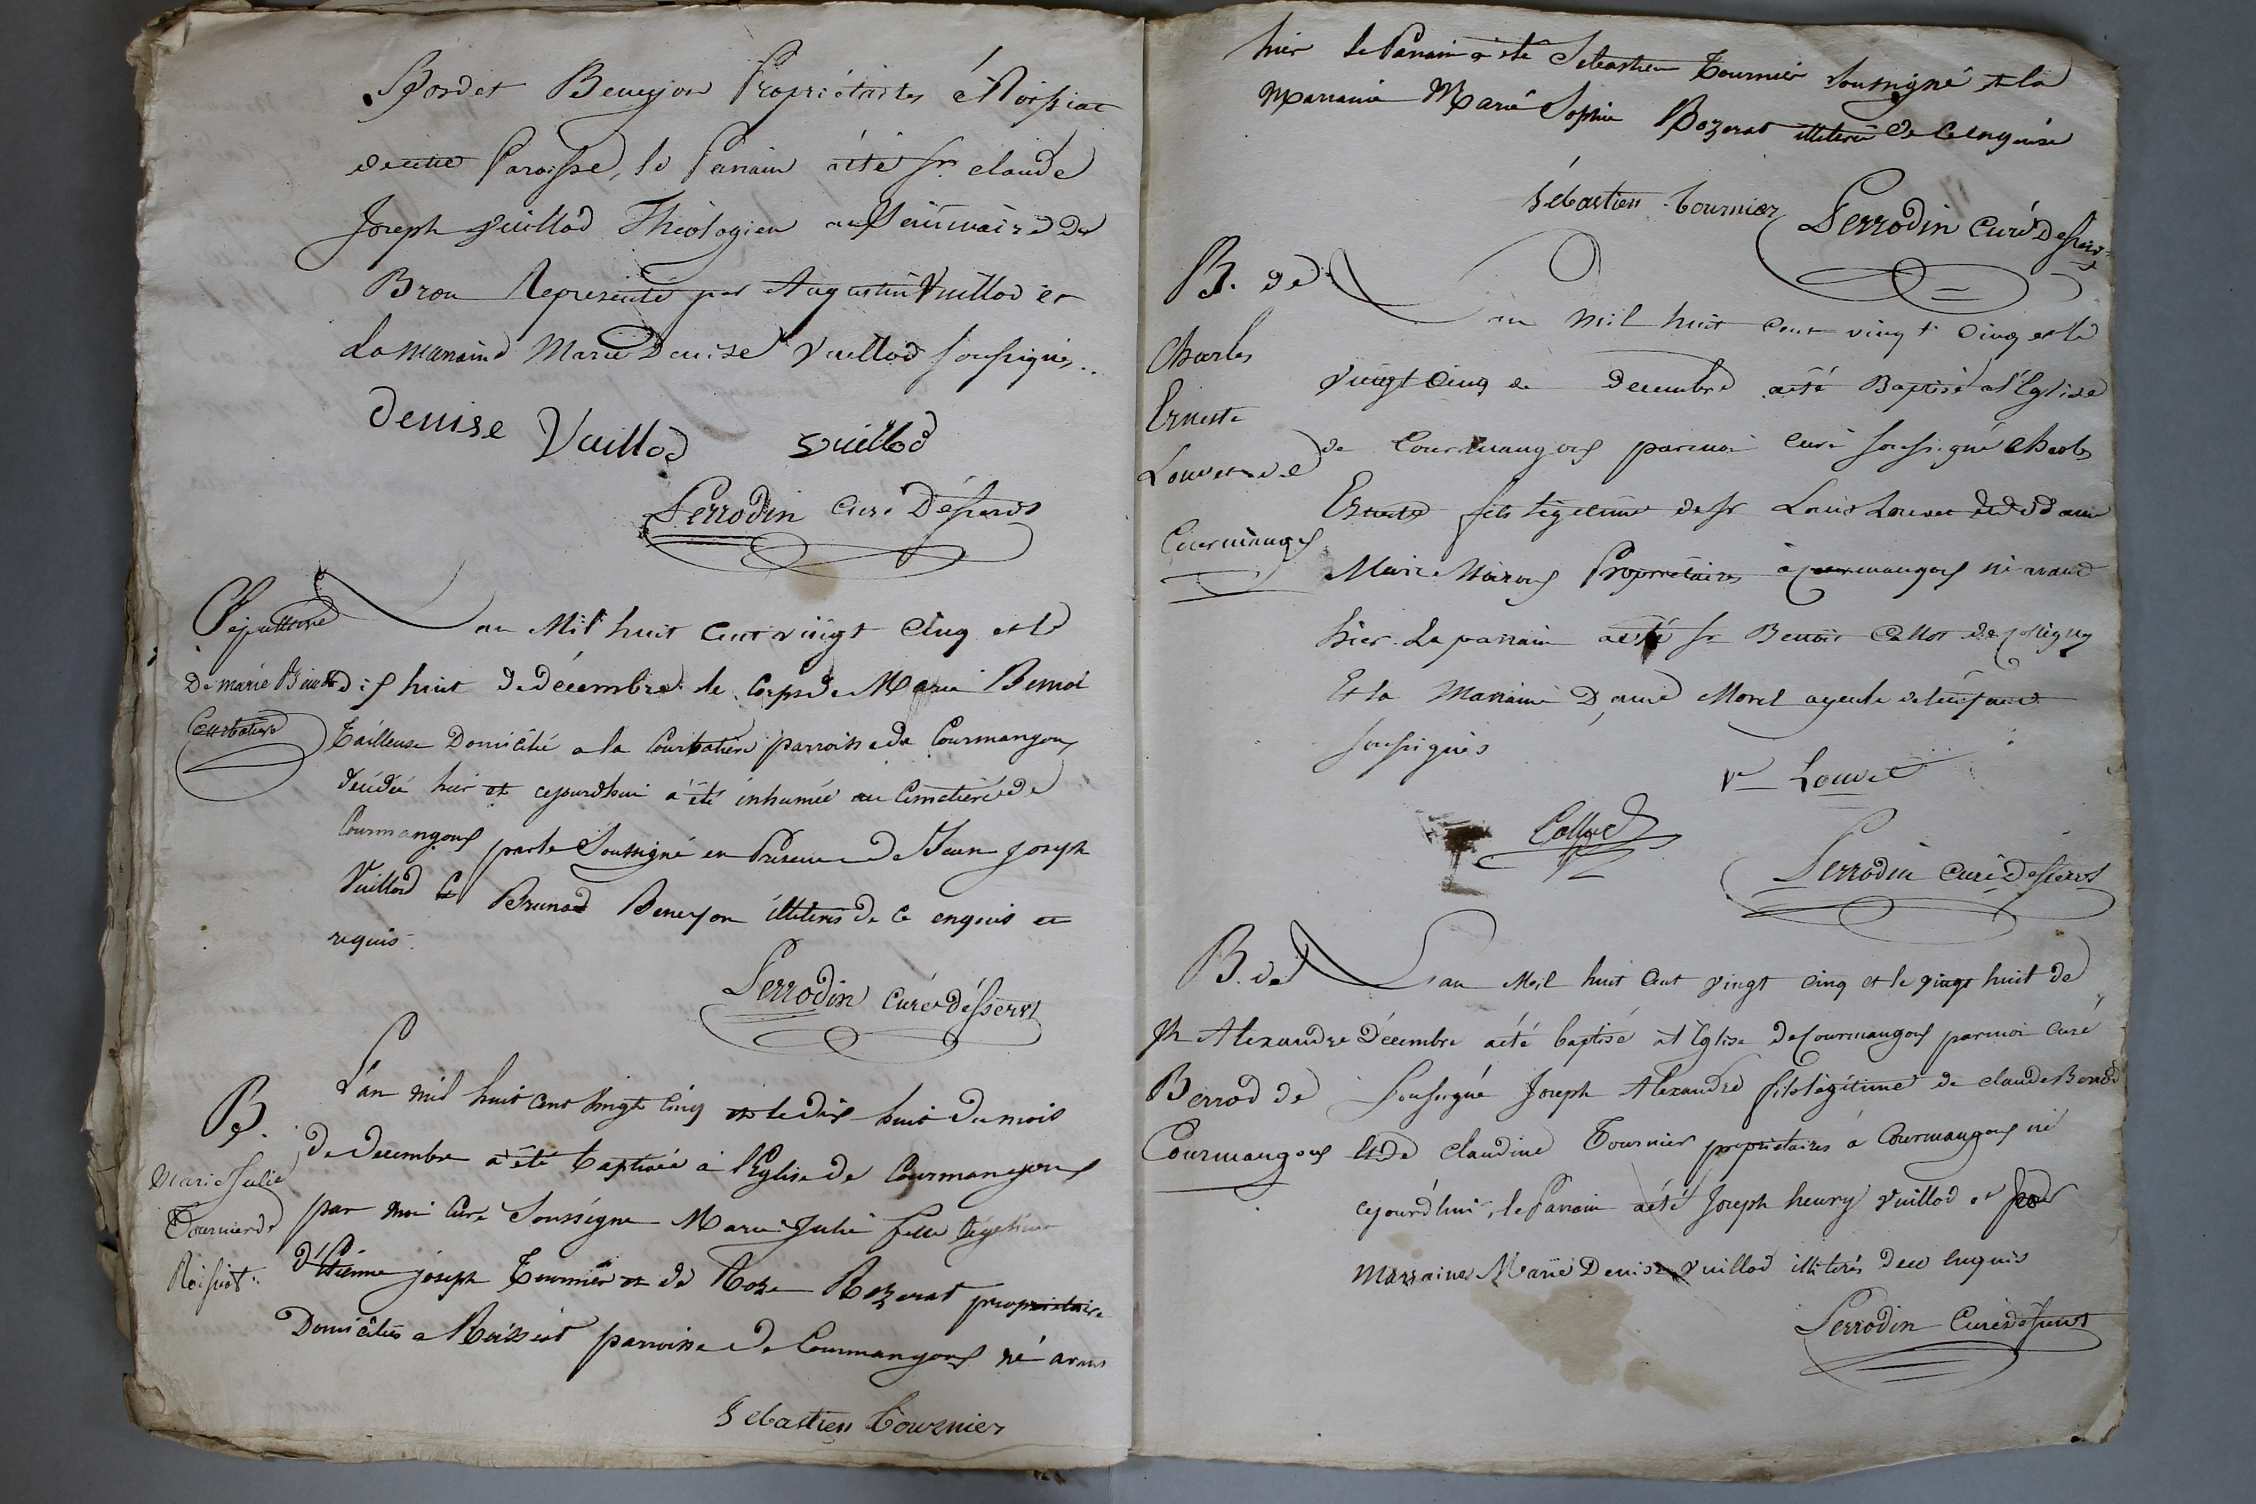 Bordet Beneyton Propriétaires à Roissiat
de cette Paroisse, le Parrain a été Sr. claude
Joseph Vuillod Théologien au Séminaire de
Brou Représenté par Augustin Vuillod et
La marraine Marie Denise Vuillod soussignés..
Denise Vuillod Vuillod
Perrodin curé Desserv.t
Sépulture
De marie Benoit
Courbatière
L'an Mil huit cent vingt cinq et le
dix huit de décembre le Corps de Marie Benoi
Tailleuse Domicilié a la Courbatière parroisse de Courmangoux
décédée hier et cejourdhui a été inhumée au Cimetière de
Courmangoux par le Soussigné en Présence de Jean joseph
Vuillod et Brunod Beneyton illiterés de ce enquis et
requis.
Perrodin curé désserv.t
B.
Marie Julie
Tournier de
Roissiat.
L'an mil huit cent vingt cinq et le dix huit du mois
de decembre a été baptisée à l'Eglise de Courmangoux
par moi Curé Soussigné Marie Julie fille légitime
d'Etienne joseph Tournier et de Roze Rozerat propriétaire
Domiciliés a Roissiat parroisse de Courmangoux né avant
Sébastien Tournier
hier le Parrain a été Sébastien Tournier soussigné et la
Marraine Marie Sophie Rozerat illiterée de ce enquise
Sébastien Tournier
Perrodin curé Desserv.t
B. de
Charles
Erneste
Louvet de
Courmangoux
L'an mil huit cent vingt cinq et le
vingt cinq de decembre a été Baptisé a l'Eglise
de Courmangoux par moi curé soussigné Charles
Erneste fils légitime de Sr Louis Louvet et de dame
Marie Propriétaires à Courmangoux né avant
hier. Le parrain a été Sr Benoit Collot de Coligny
Et la Marraine Dame Morel ayeule de l'enfant
soussignés
Ve Louvet
Collot
Perrodin curé Desserv.t
B. de
Jh Alexandre
Berrod de
Courmangoux
L'an Mil huit Cent vingt cinq et le vingt huit de
Décembre a été baptisé à l'Eglise de Courmangoux par moi curé
Soussigné Joseph Alexandre fils légitime de claude Berrod
Et de claudine Tournier propriétaires à Courmangoux né
cejourd'hui, le Parrain a été Joseph henry Vuillod et pour
Marraine Marie Denise Vuillod illiterés de ce Enquis
Perrodin Curé desserv.t